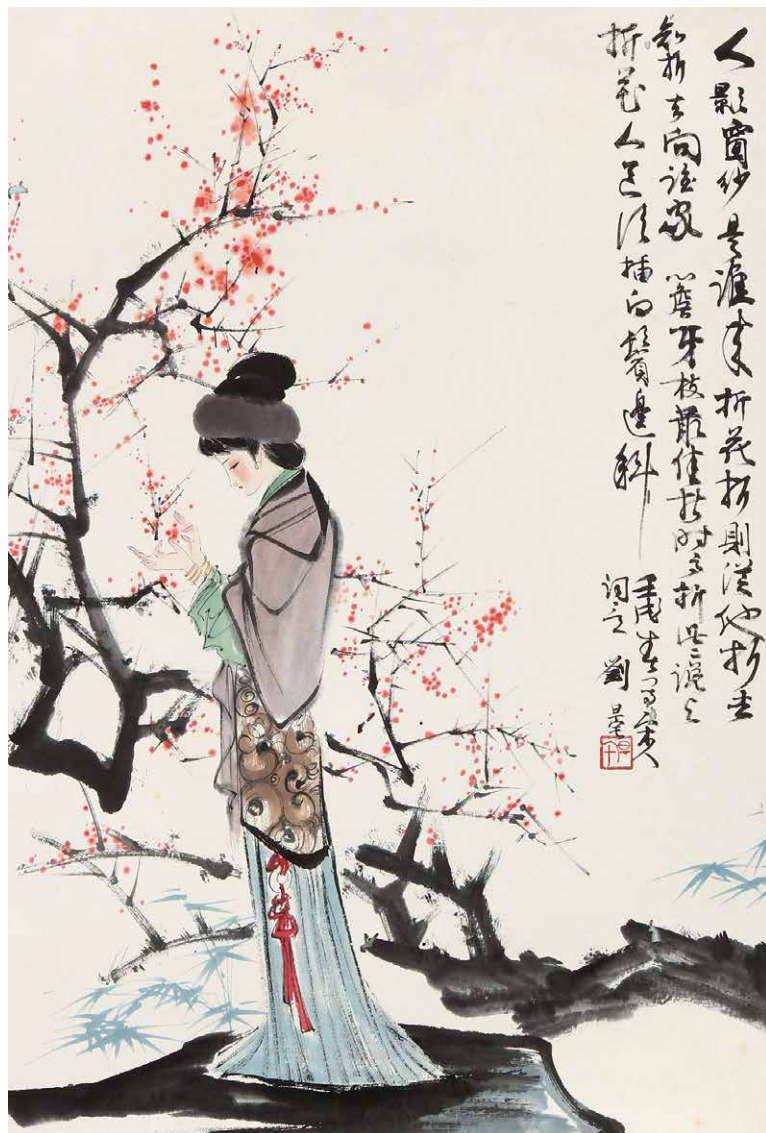 人影窗紗是誰來折花折則從他折去
知折去向誰家簷牙枝最佳折时高折些說与
折花人道須插向鬢邊斜
壬戌春日写宋人
词意 劉旦宅